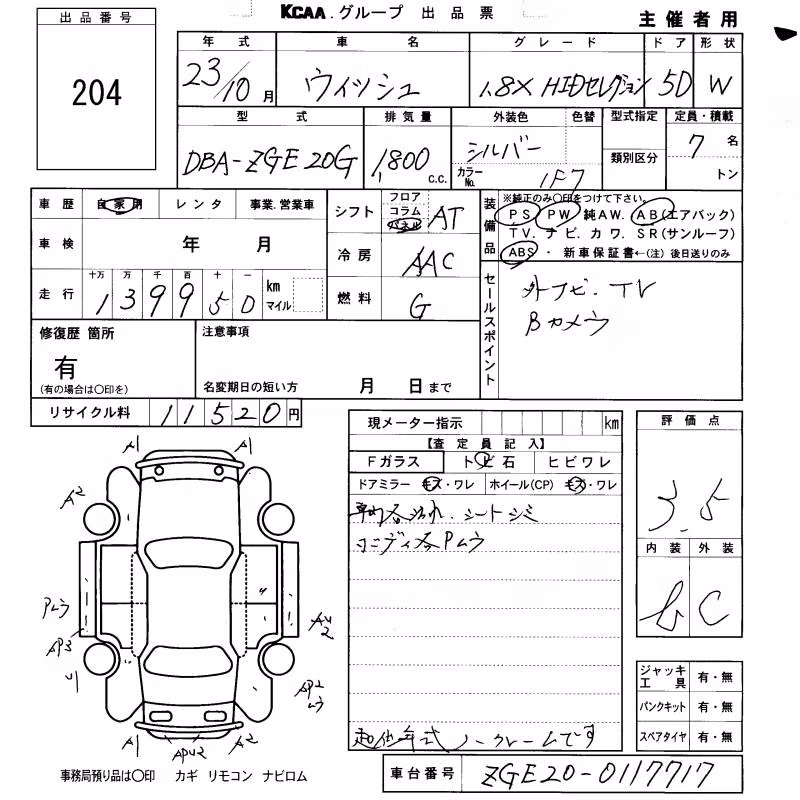 KCAA.グループ 出品票 主催者用
出品番号
204
年式 車名 グレード ドア 形状
23/10月 ウィッシュ 1.8X HIDセレクション 5D W
型式 排気量 外装色 色替 型式指定 定員・積載
DBA-ZGE20G 1800 c.c. シルバー カラーNo. 1F7 類別区分 7名 トン
車歴 自家用 レンタ 事業.営業車
車検 年 月
走行 十万 万 千 百 十 一 km マイル
139950
シフト フロア コラム パネル AT
冷房 AAC
燃料 G
装備品
※純正のみ〇印をつけて下さい。
PS PW 純AW. AB(エアバック)
TV. ナビ. カワ. SR(サンルーフ)
ABS・新車保証書←(注)後日送りのみ
セールスポイント
外ナビ.TV
Bカメラ
修復歴 箇所
有
(有の場合は〇印を)
注意事項
名変期日の短い方 月 日まで
リサイクル料 11520円
現メーター指示 km
【査定員記入】
Fガラス トビ石 ヒビワレ
ドアミラー キズ・ワレ ホイール(CP) キズ・ワレ
シートシミ
Pムラ
ノークレームです
評価点
3.5
内装 外装
C
ジャッキ工具 有・無
パンクキット 有・無
スペアタイヤ 有・無
A1 A1
A2
Pムラ
AP3
A1 APU2 A2
事務局預り品は〇印 カギ リモコン ナビロム
車台番号 ZGE20-0117717